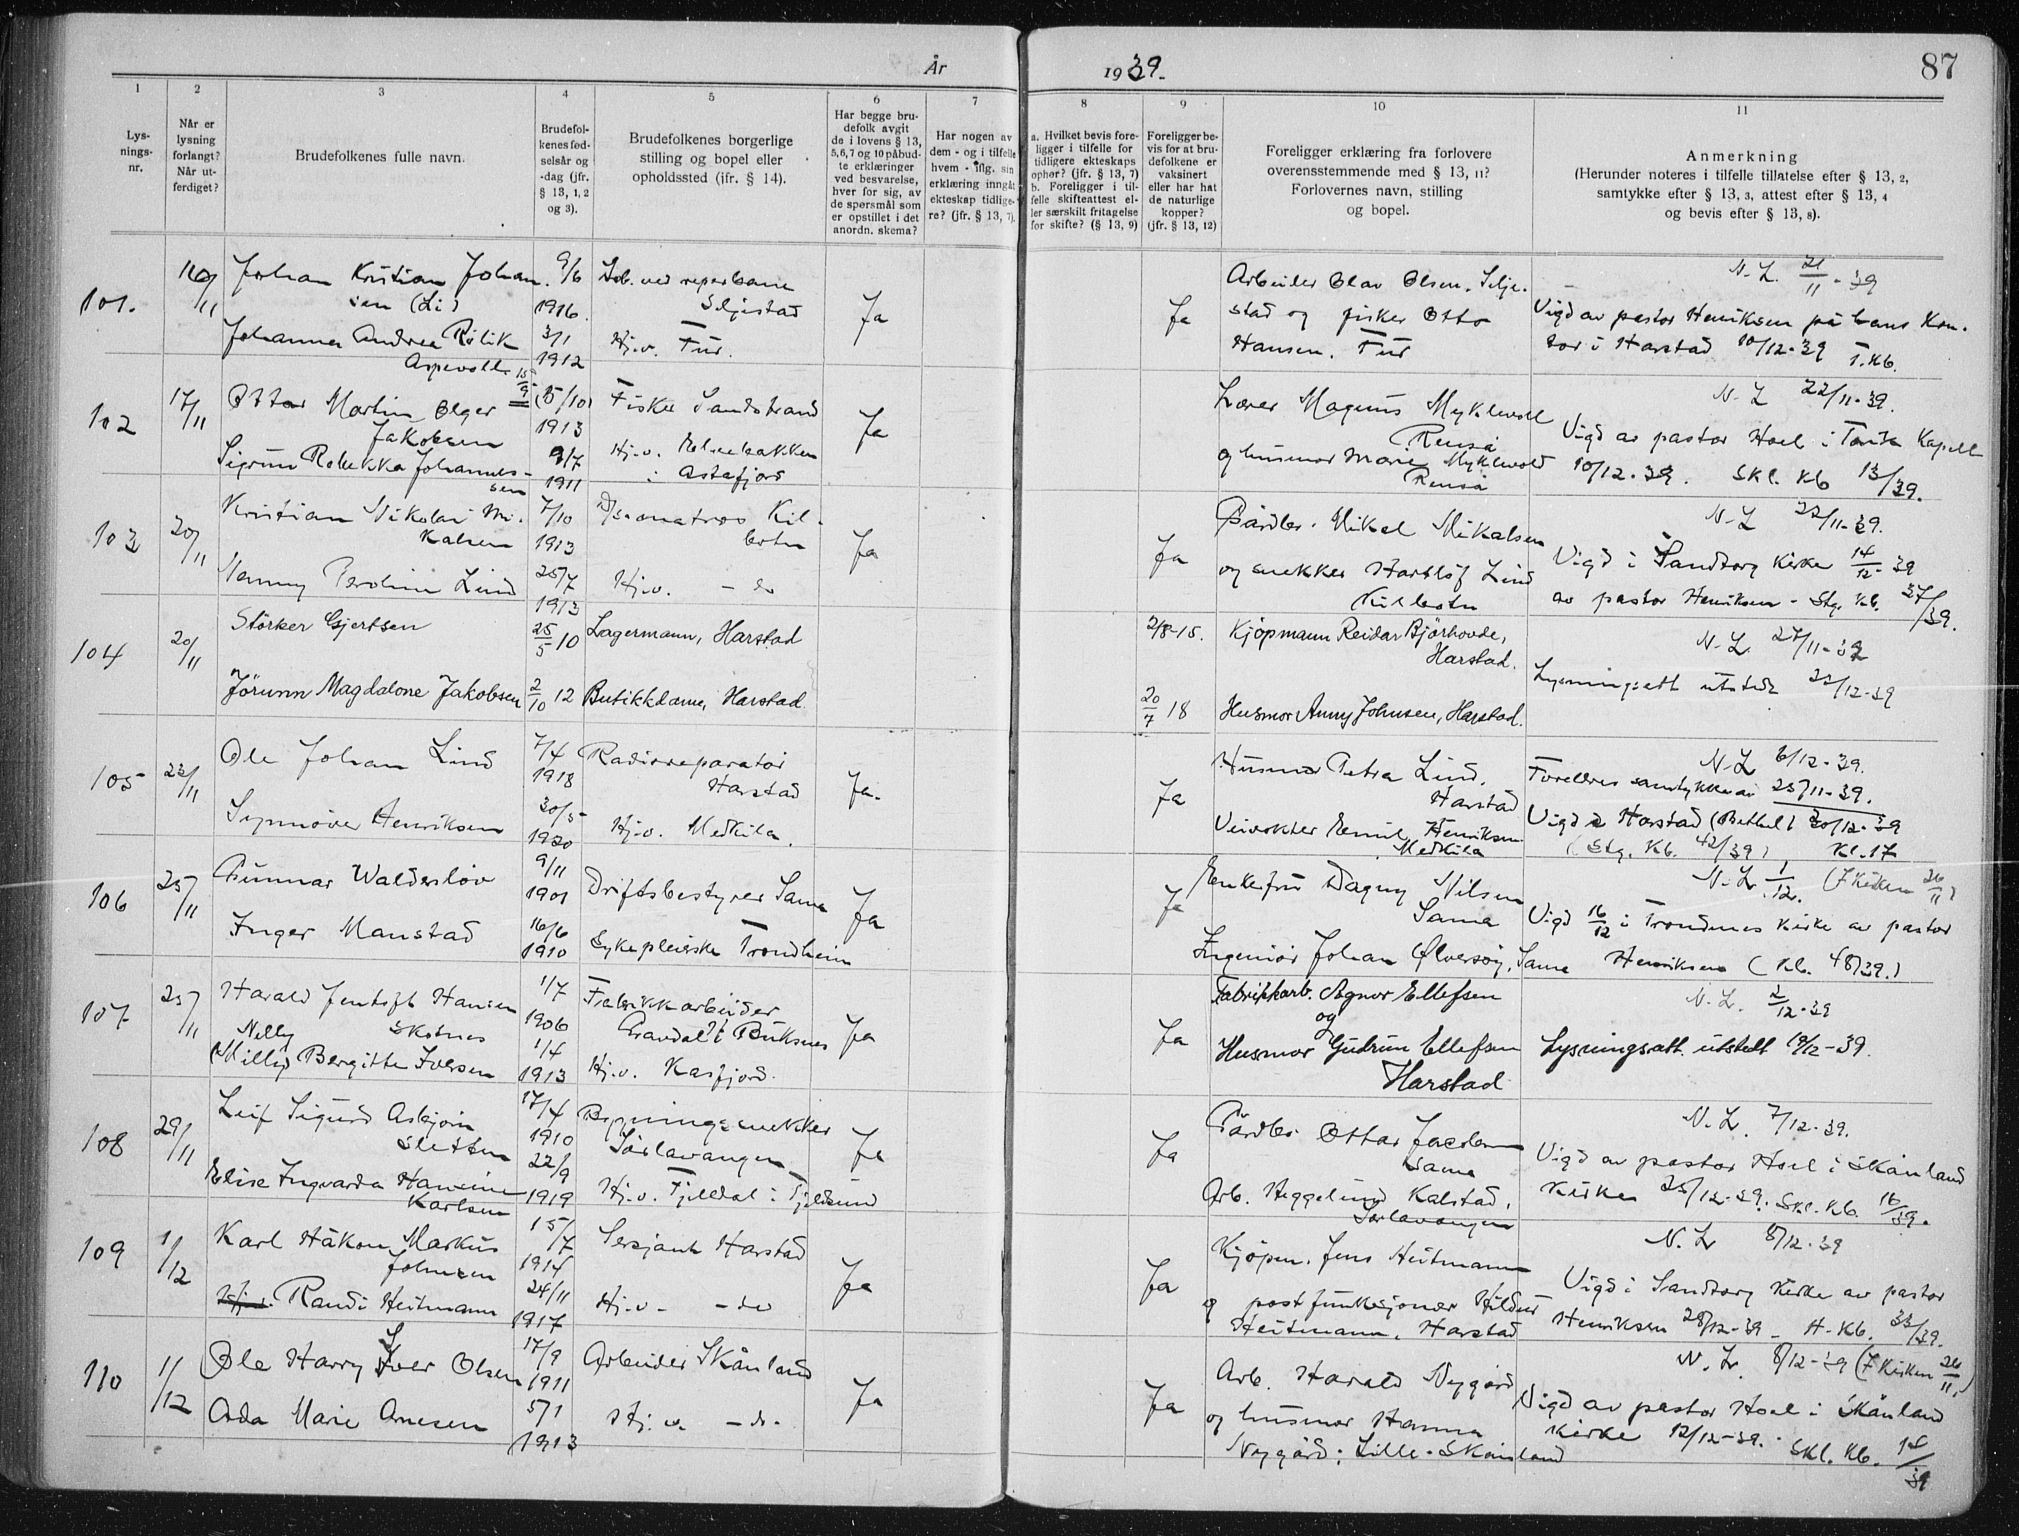 År 1939. 87
1 2 3 4 5 6 7 8 9 10 11
Lys-
nings-
nr.
Når er
lysning
forlangt?
Når ut-
ferdiget?
Brudefolkenes fulle navn.
Brudefol-
kenes fød-
selsår og
-dag (jfr.
§ 13, 1, 2
og 3).
Brudefolkenes borgerlige
stilling og bopel eller
opholdssted (jfr. § 14).
Har begge bru-
defolk avgit
de i lovens § 13,
5, 6, 7 og 10 påbud-
te erklæringer
ved besvarelse,
hver for sig, av
de spørsmål som
er opstillet i det
anordn. skema?
Har nogen av
dem - og i tilfelle
hvem - iflg. sin
erklæring inngåt
ekteskap tidlige-
re? (jfr. § 13, 7).
a. Hvilket bevis fore-
ligger i tilfelle for
tidligere ekteskaps
ophør? (jfr. § 13, 7)
b. Foreligger i til-
felle skifteattest el-
ler særskilt fritagelse
for skifte? (§ 13, 9)
Foreligger be-
vis for at bru-
defolkene er
vaksinert
eller har hat
de naturlige
kopper?
(jfr. § 13, 12)
Foreligger erklæring fra forlovere
overensstemmende med § 13, 11?
Forlovernes navn, stilling
og bopel.
Anmerkning
(Herunder noteres i tilfelle tillatelse efter § 13, 2,
samtykke efter § 13, 3, attest efter § 13, 4
og bevis efter § 13, 8).
101.
Johan Kristian Johan-
sen (Li)
9/6
1916.
Arb. ved reperbane
Seljestad
Johanna Andrea Rölik
Aspevoll
3/1
1912
Hj.v. Fur.
Ja
Ja
Arbeider Olav Olsen, Selje-
stad og fisker Otto
Hansen. Fur
N.L. 21/11-39
Vigd av pastor Henriksen på hans Kon-
tor i Harstad 10/12-39 T.Kb.
102
17/11
Ottar Martin Olger
Jakobsen
15/9 (15/10)
1913
Fisker Sandstrand
Sigrun Rebekka Johannes-
sen
9/7
1911
Hj.v. Elvebakken
i Astafjord
Ja
Lærer Magnus Myklevoll
Renså
og husmor Marie Myklevold
Renså
N.L 22/11-39.
Vigd av pastor Hoel i Tovik Kapell
10/12-39. Skl. Kb 13/39.
103
20/11
Kristian Nikolai Mi-
kalsen
7/10
1913
D/s.matros Kil-
botn
Nanny Paroline Lind
25/7
1913
Hj.v. - do
Ja
Ja
Gårdbr. Mikal Mikalsen
og snekker Hartlöf Lind
Kilbotn
N.L 22/11-39.
Vigd i Sandtorg Kirke 14/12-39
av pastor Henriksen - Stg. Kb. 37/39.
104
20/11
Störker Gjertsen
25/5 10
Lagermann, Harstad
2/8-15.
Kjöpmann Reidar Bjørhovde,
Harstad.
Jörunn Magdalone Jakobsen
2/10 12
Butikkdame, Harstad
20/7 18
Husmor Anny Johnsen, Harstad.
N.L. 27/11-39
Lysningsatt utstedt 22/12-39
105
23/11
Ole Johan Lind
7/4
1918
Radioreparatör
Harstad
Synnöve Henriksen
30/5
1920
Hj.v. Medkila.
Ja.
Ja
Husmor Petra Lind,
Harstad
Veivokter Emil Henriksen
Medkila
N.L 6/12-39.
Foreldres samtykke av 23/11-39.
Vigd i Harstad (Bethel) 30/12-39
(Stg. Kb. 42/39) Kl.17
106
25/11
Gunnar Walderslöv
9/11
1901
Driftsbestyrer Sama
Inger Manstad
16/6
1910
Sykepleierske Trondheim
Ja
Ja
Enkefru Dagny Nilsen
Sama
Ingeniör Johan Ølversöy, Sama
N.L. 1/12. (F Kirken 26/11)
Vigd 16/12 i Trondenes Kirke av pastor
Henriksen (Kb. 48/39.)
107
25/11
Harald Jentoft Hansen
Skotnes
1/7
1906
Fabrikkarbeider
Gravdal i Buksnes
Nelly
(Milly) Bergitte Iversen
1/4
1913
Hj.v. Kasfjord.
Ja
Ja
Fabrikkarb. Agnor Ellefsen
og
Husmor Gudrun Ellefsen
Harstad
N.L. 2/12-39
Lysningsatt. utstedt 19/12-39.
108
29/11
Leif Sigurd Asbjørn
Sletten
17/4
1910
Bygningssnekker
Sörlavangen
Elise Ingvarda Hansine
Karlsen
22/9
1919
Hj.v. Fjelldal i Tjeldsund
Ja
Ja
Gårdbr. Ottar Jacobsen
Sama
Arb. Heggelund Kalstad,
Sörlavangen
N.L. 7/12-39.
Vigd av pastor Hoel i Skånland
Kirke 25/12-39. Skl. Kb. 16/39.
109
1/12
Karl Håkon Markus
Johnsen
15/7
1914
Sersjant Harstad
Randi Heitmann
24/11
1917
Hj.v. - do
Ja
Ja
Kjöpm. Jens Heitmann
og postfunksjonær Hildur
Heitmann. Harstad
N.L 8/12-39
Vigd i Sandtorg Kirke av pastor
Henriksen 28/12-39 - H-Kb. 33/39.
110
1/12
Ole Harry Iver Olsen
17/9
1911
Arbeider Skånland
Ada Marie Arnesen
5/1
1913
Hj.v. - do
Ja
Ja
Arb. Harald Nygård
og husmor Hanna
Nygård; Lille-Skånland
N.L. 8/12-39 (F Kirken 26/11)
Vigd av pastor Hoel i Skånland
Kirke 12/12-39. Skl. Kb. 14/39